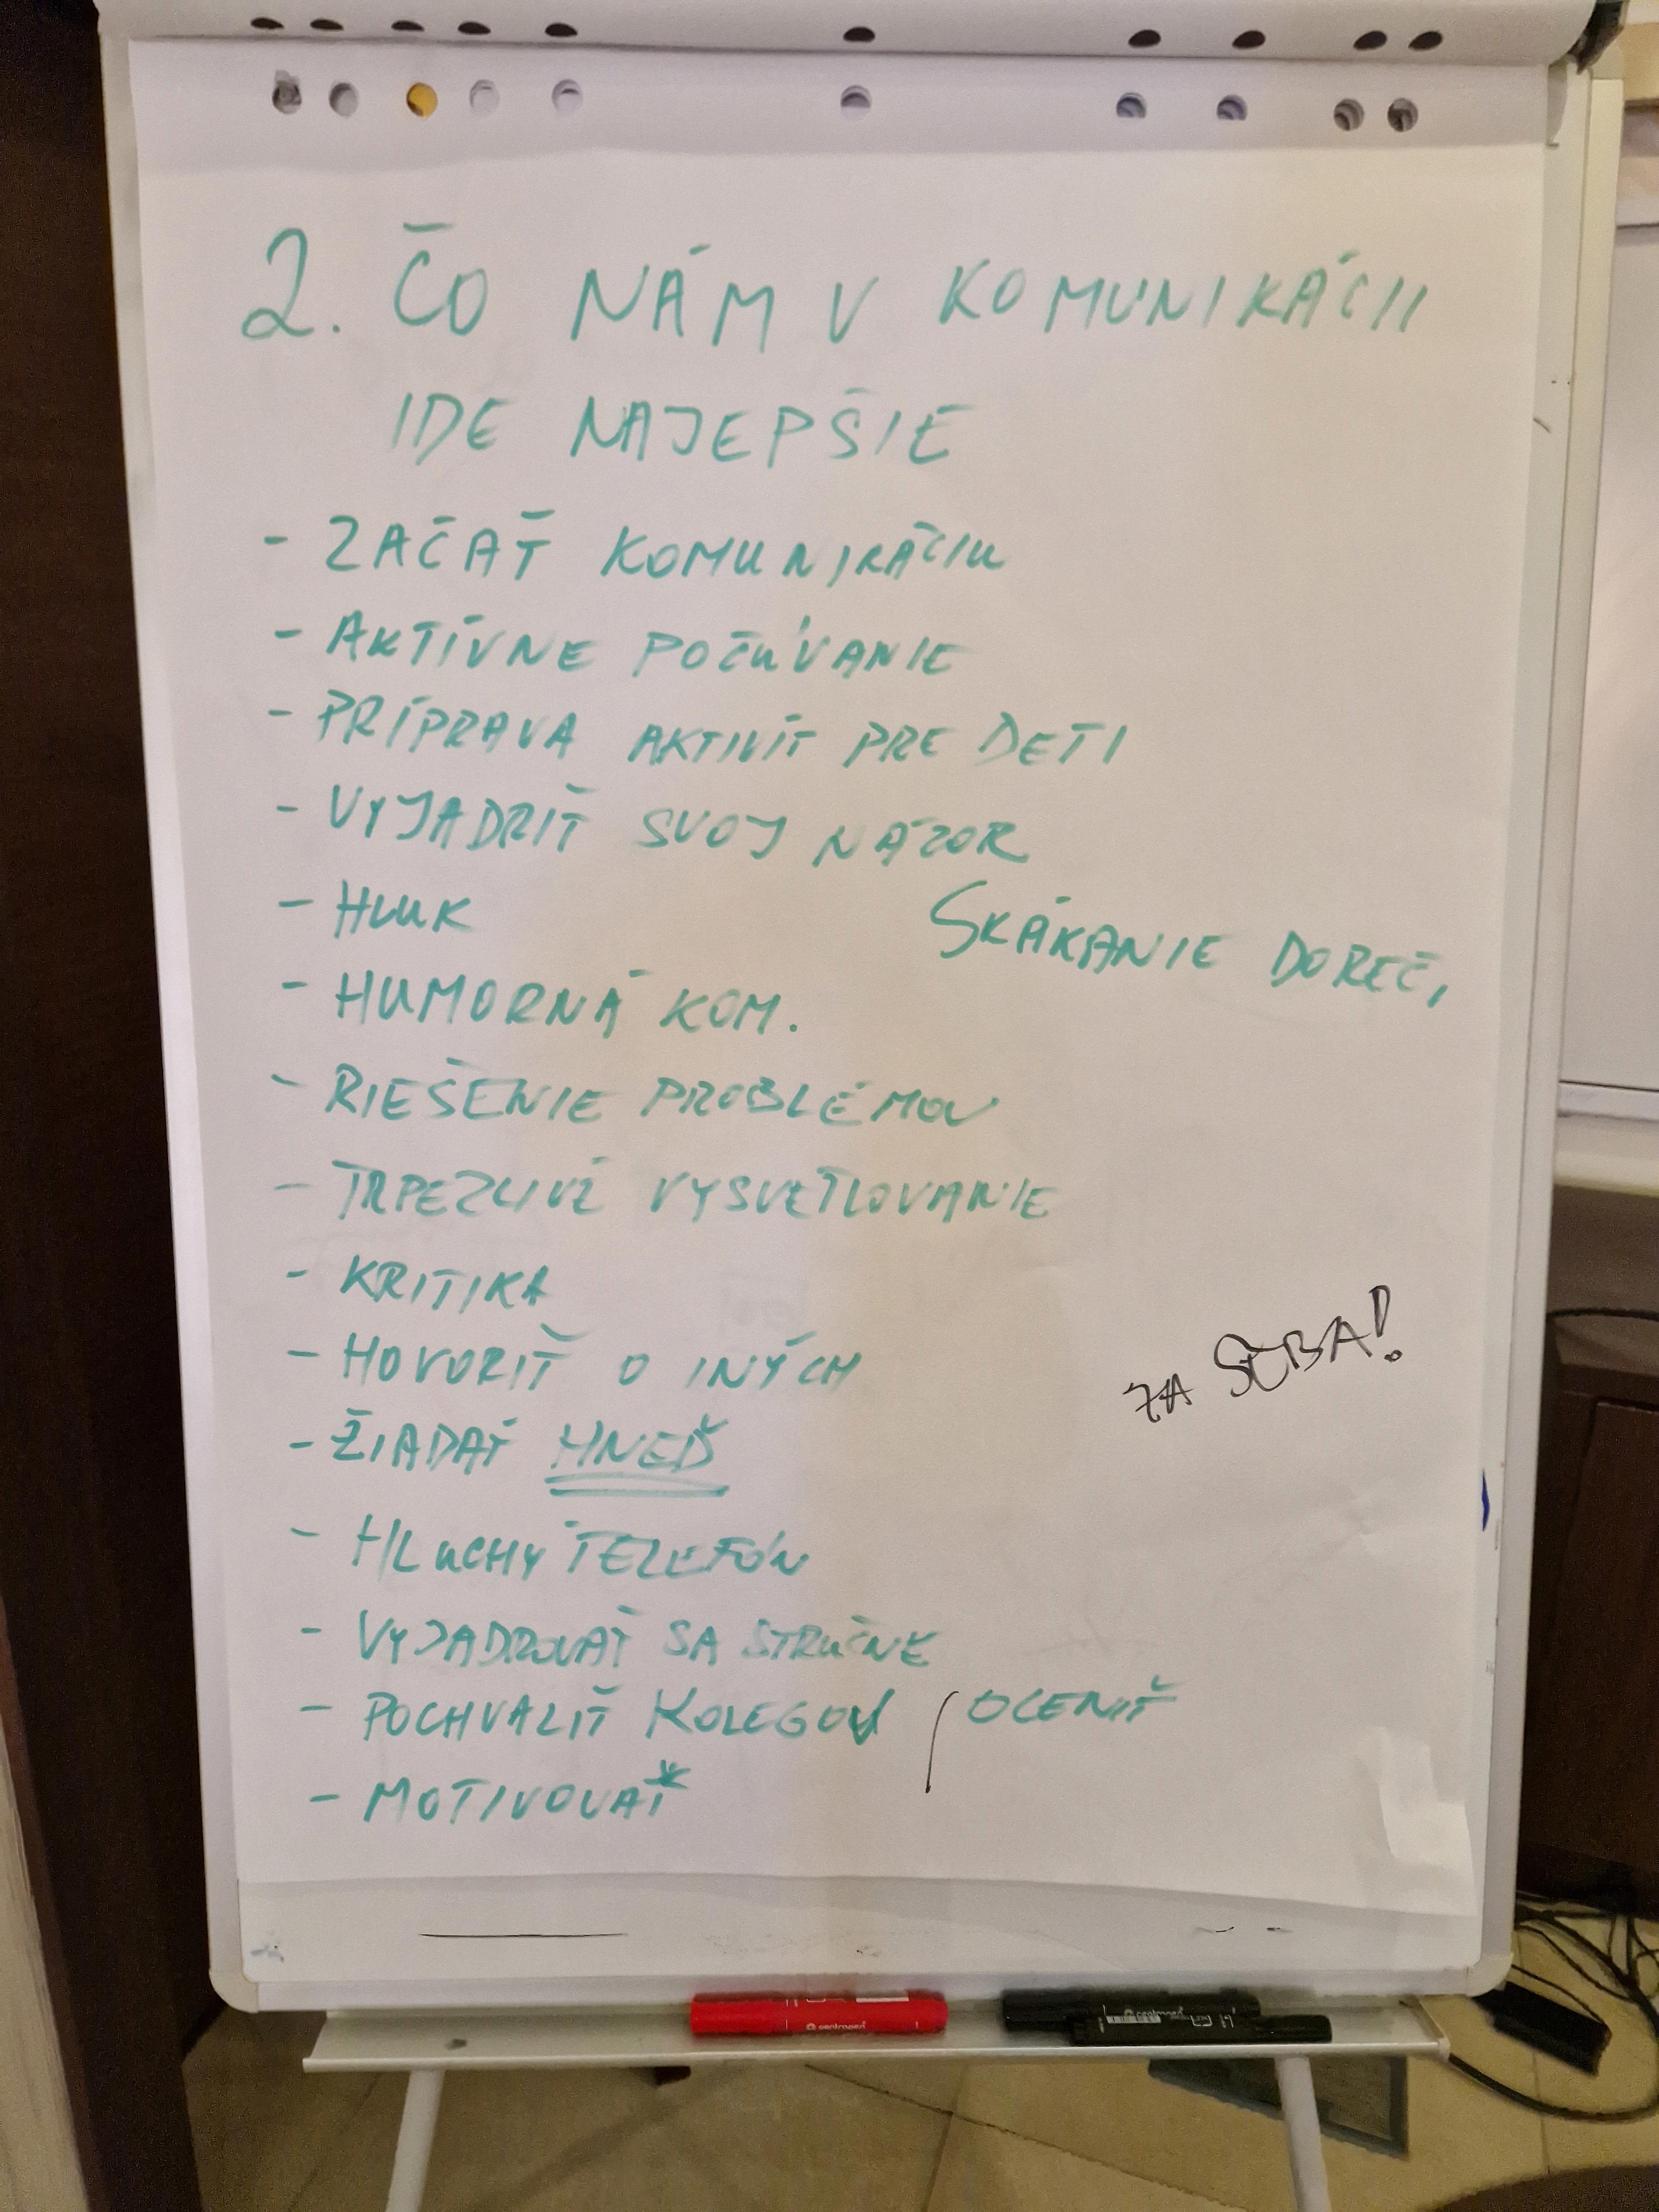 2. ČO NÁM V KOMUNIKÁCII
IDE NAJEPŠIE
- ZAČAŤ KOMUNIKÁCIU
- AKTÍVNE POČÚVANIE
- PRÍPRAVA AKTIVÍT PRE DETI
- VYJADRIŤ SVOJ NÁZOR
- HLUK
SKÁKANIE DOREČI
- HUMORNÁ KOM.
- RIEŠENIE PROBLÉMOV
- TRPEZLIVÉ VYSVETLOVANIE
- KRITIKA
- HOVORIŤ O INÝCH
ZA SEBA!
- ŽIADAŤ HNEĎ
- HLUCHY TELEFÓN
- VYJADROVAŤ SA STRUČNE
- POCHVALIŤ KOLEGOV / OCENIŤ
- MOTIVOVAŤ
centropen
centropen